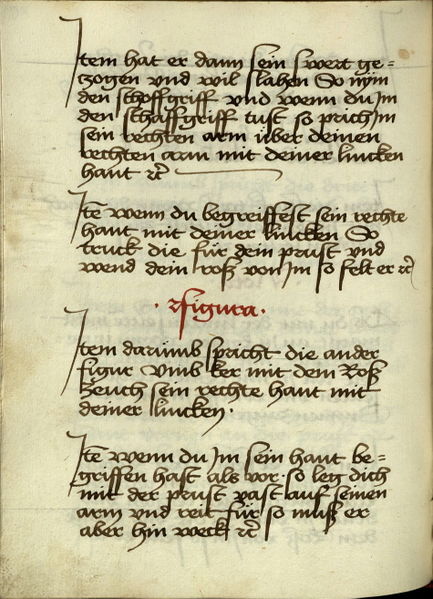 Item hat er dann sein swert ge=
zogen vnd wil slahen So nym
den schoff griff vnd wenn du Im
den schaffgriff tust so prich Im
sein rechten arm über deinen
rechten arm mit deiner lincken
hant ꝛc
Itē wenn du begreiffest sein rechte
hant mit deiner lincken So
truck die für dein prust vnd
wend dein roß von Im so felt er ꝛc
· figura ·
Item darumb spricht die ander
figur vmb ker mit dem Roß
Zeuch sein rechte hant mit
deiner lincken ·
Itē wenn du Im sein hant be=
griffen hast als vor · so leg dich
mit der prust vast auf seinen
arm vnd reit für so muß er
aber hin weck ꝛc